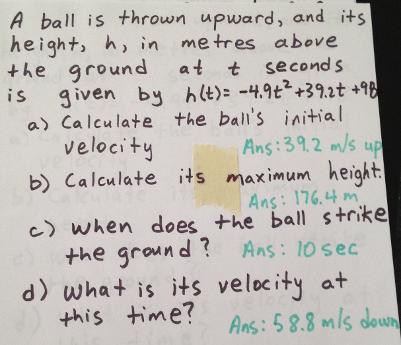 A ball is thrown upward, and its
height, h, in metres above
the ground at t seconds
is given by h(t)= -4.9t² +39.2t +98
a) Calculate the ball's initial
velocity Ans: 39.2 m/s up
b) Calculate its maximum height.
Ans: 176.4 m
c) When does the ball strike
the ground? Ans: 10 sec
d) What is its velocity at
this time? Ans: 58.8 m/s down